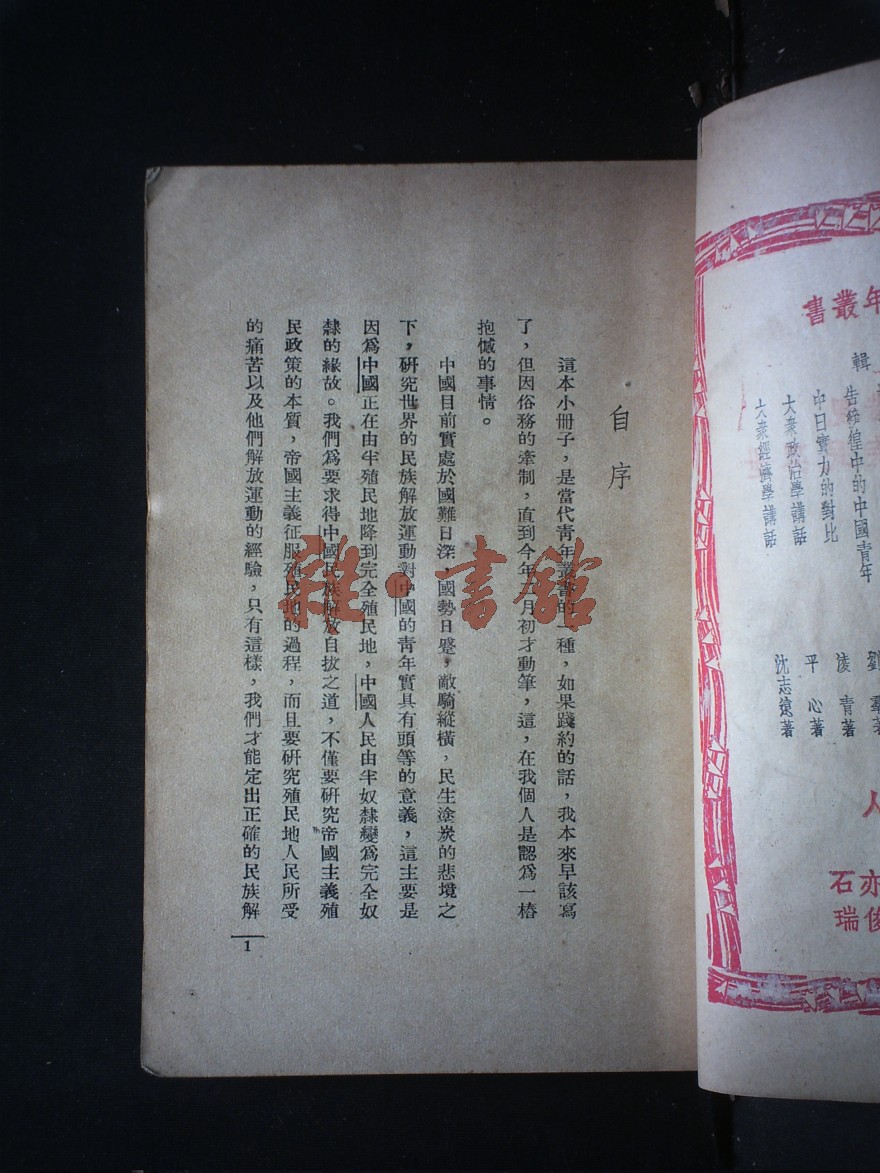 年叢書
輯
告彷徨中的中國青年
中日實力的對比
凌青著
大衆政治學講話
平心著
大衆經濟學講話
沈志遠著
人
亦石
俊瑞
自序
這本小冊子，是當代青年叢書的一種，如果踐約的話，我本來早該寫
了，但因俗務的牽制，直到今年二月初才動筆，這，在我個人是認爲一樁
抱憾的事情。
中國目前實處於國難日深，國勢日蹙，敵騎縱橫，民生塗炭的悲境之
下，研究世界的民族解放運動對中國的青年實具有頭等的意義，這主要是
因爲中國正在由半殖民地降到完全殖民地，中國人民由半奴隸變爲完全奴
隸的緣故。我們爲要求得中國民族解放自拔之道，不僅要研究帝國主義殖
民政策的本質，帝國主義征服殖民地的過程，而且要研究殖民地人民所受
的痛苦以及他們解放運動的經驗，只有這樣，我們才能定出正確的民族解
1
雜·書館